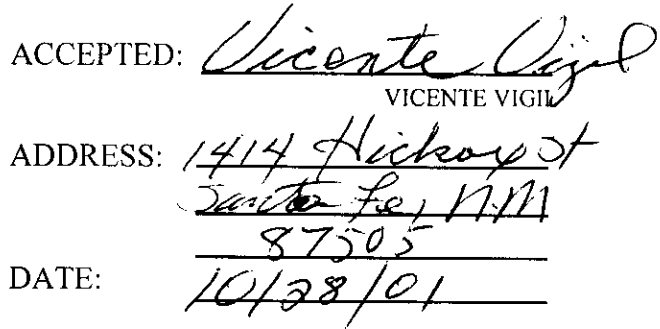 ACCEPTED: Vicente Vigil
VICENTE VIGIL
ADDRESS: 1414 Hickox St
Santa Fe, N.M
87505
DATE: 10/28/01